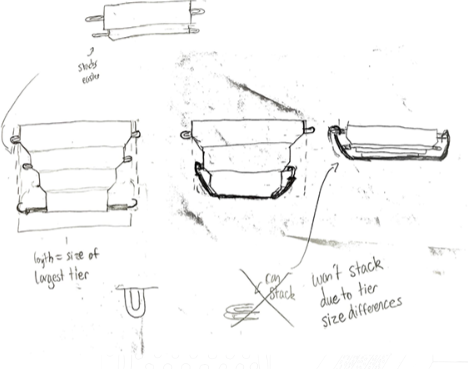 stacks
easier
length = size of
largest tier
can
stack
won't stack
due to tier
size differences